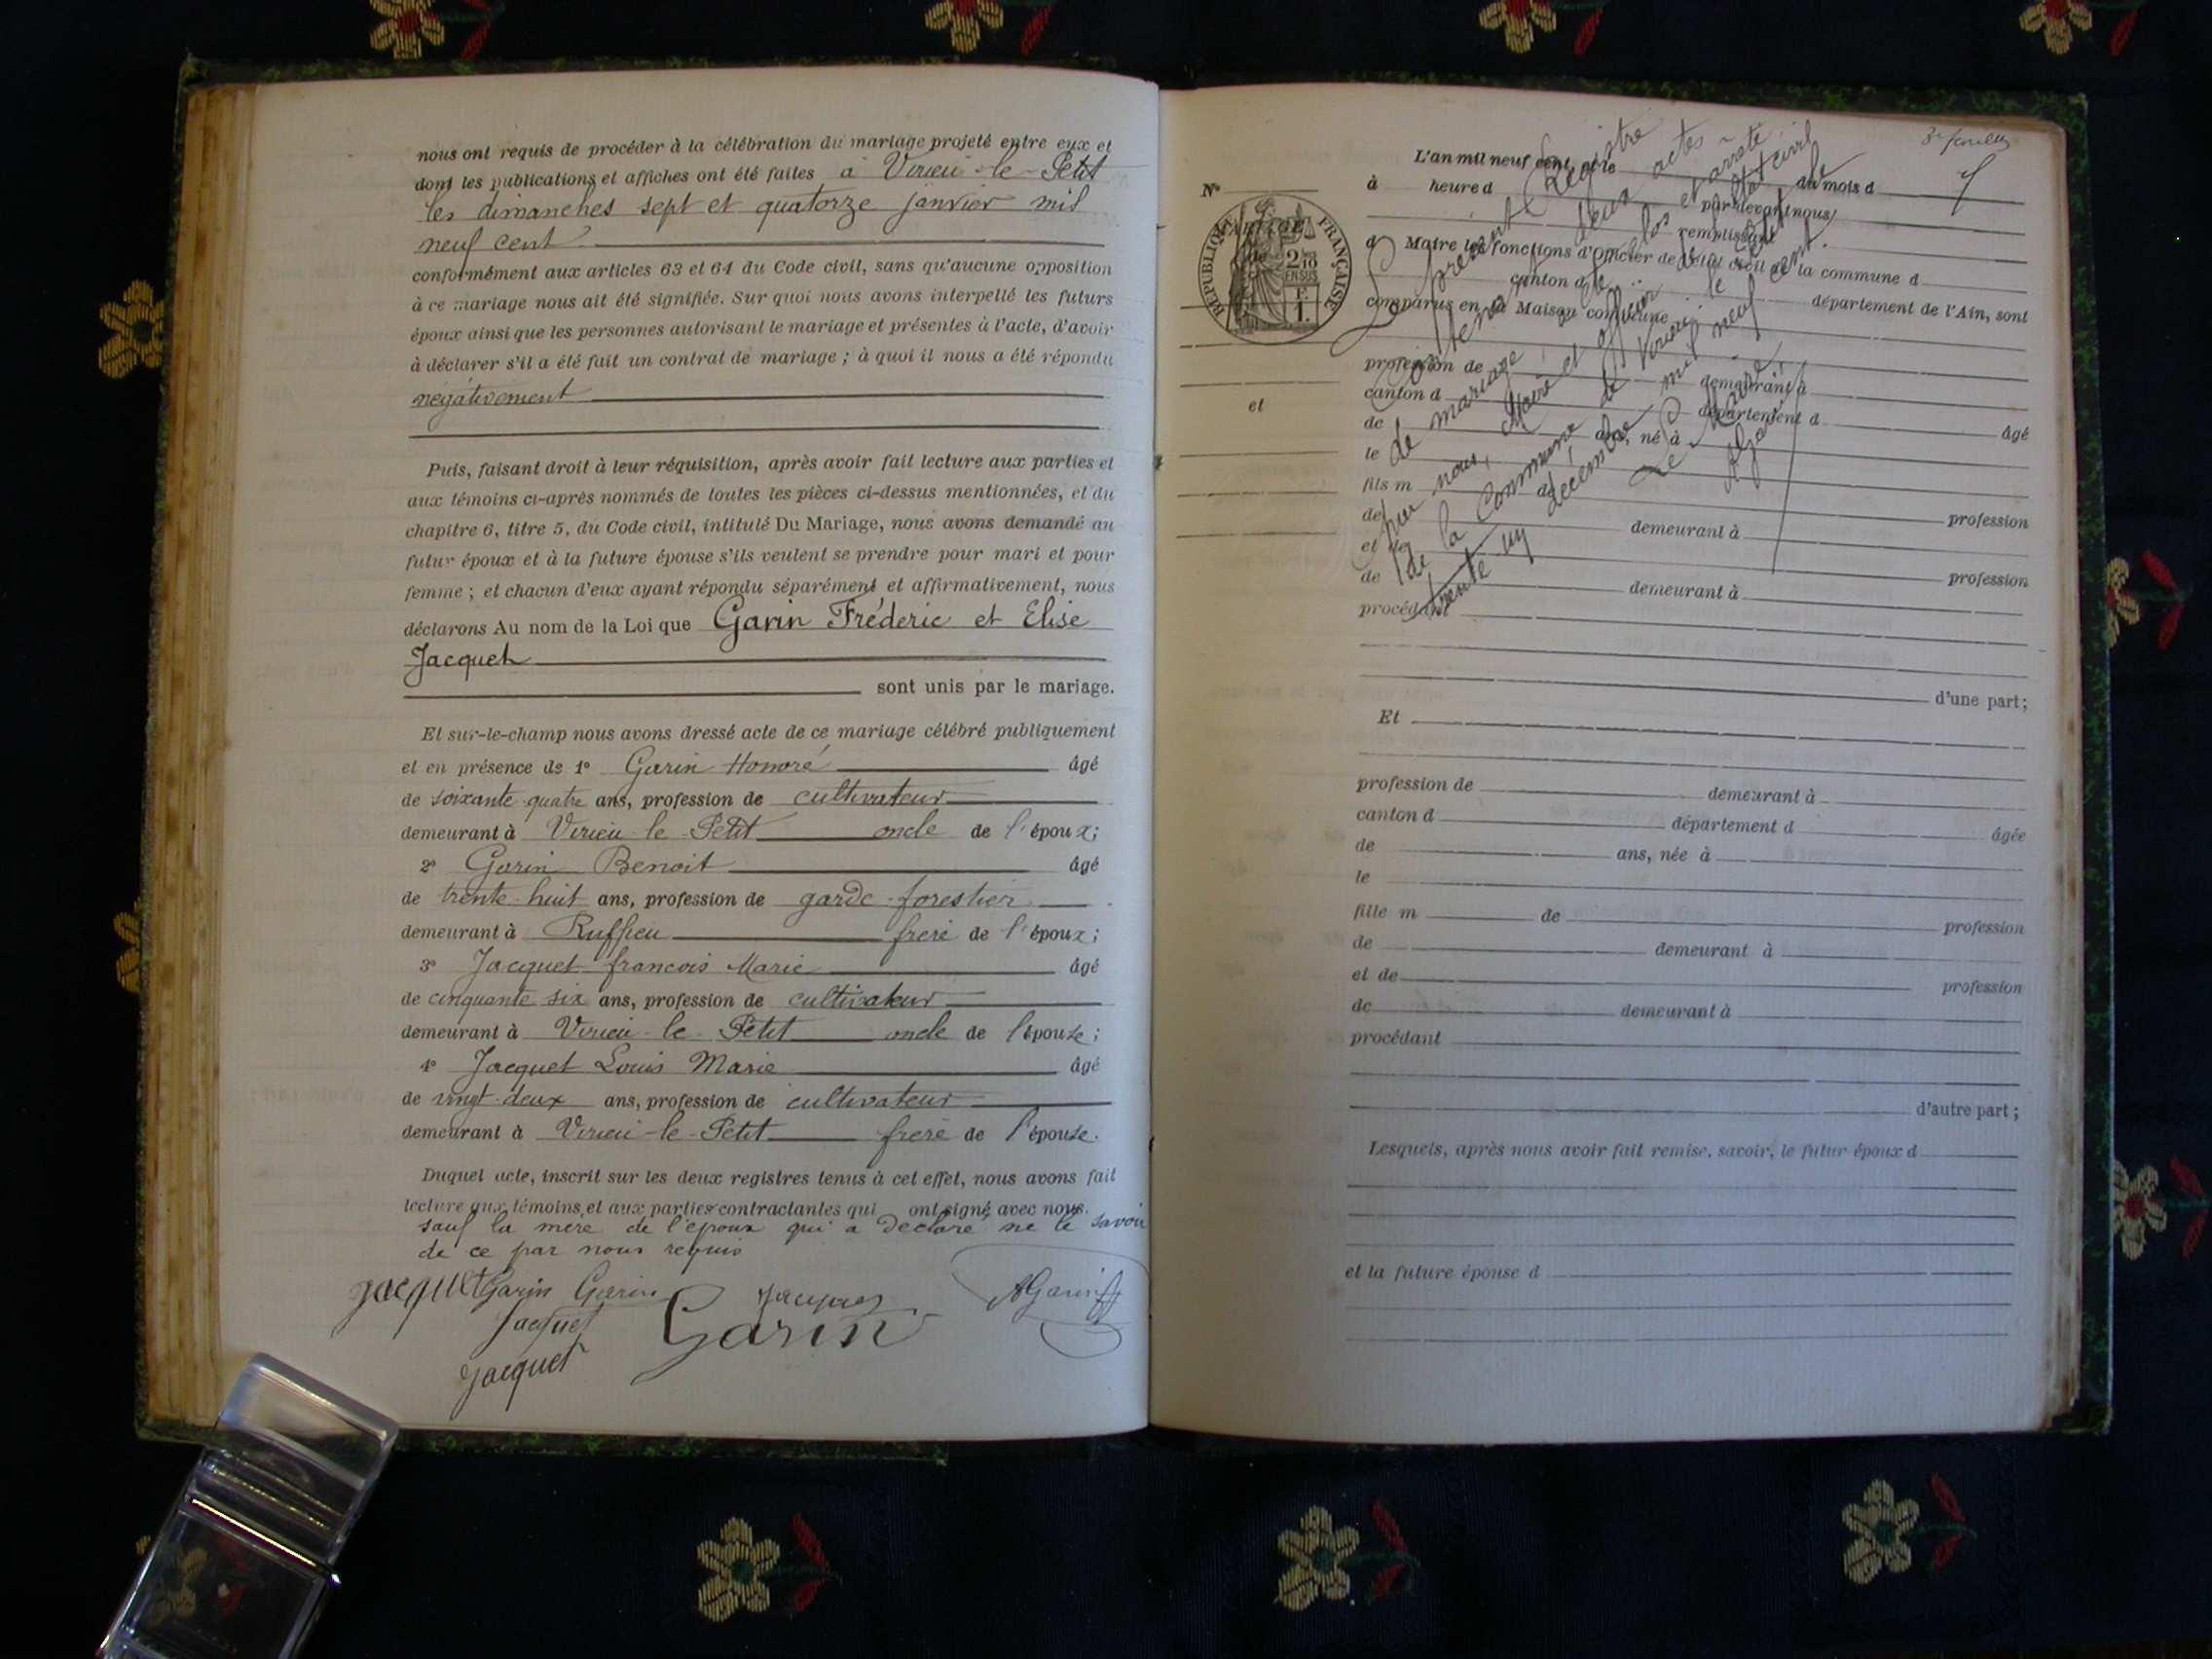 nous ont requis de procéder à la célébration du mariage projeté entre eux et
dont les publications et affiches ont été faites à Virieu-le-Petit
les dimanches sept et quatorze janvier mil
neuf cent
conformément aux articles 63 et 64 du Code civil, sans qu'aucune opposition
à ce mariage nous ait été signifiée. Sur quoi nous avons interpellé les futurs
époux ainsi que les personnes autorisant le mariage et présentes à l'acte, d'avoir
à déclarer s'il a été fait un contrat de mariage ; à quoi il nous a été répondu
négativement
Puis, faisant droit à leur réquisition, après avoir fait lecture aux parties et
aux témoins ci-après nommés de toutes les pièces ci-dessus mentionnées, et du
chapitre 6, titre 5, du Code civil, intitulé Du Mariage, nous avons demandé au
futur époux et à la future épouse s'ils veulent se prendre pour mari et pour
femme ; et chacun d'eux ayant répondu séparément et affirmativement, nous
déclarons Au nom de la Loi que Garin Fréderic et Elise
Jacquet
sont unis par le mariage.
Et sur-le-champ nous avons dressé acte de ce mariage célébré publiquement
et en présence de 1° Garin Honoré âgé
de soixante quatre ans, profession de cultivateur
demeurant à Virieu-le-Petit oncle de l'époux;
2° Garin Benoit âgé
de trente-huit ans, profession de garde-forestier
demeurant à Ruffieu frère de l'époux;
3° Jacquet francois Marie âgé
de cinquante six ans, profession de cultivateur
demeurant à Virieu-le-Petit oncle de l'épouse;
4° Jacquet Louis Marie âgé
de vingt-deux ans, profession de cultivateur
demeurant à Virieu-le-Petit frère de l'épouse.
Duquel acte, inscrit sur les deux registres tenus à cet effet, nous avons fait
lecture aux témoins et aux parties contractantes qui ont signé avec nous.
sauf la mère de l'époux qui a déclaré ne le savoir
de ce par nous requis
Jacquet Garin Garin Jacquet AGarin
Jacquet Garin
Jacquet
3e feuillet
L'an mil neuf cent, et le du mois d
N° à heure d par devant nous
remplissant
Maire les fonctions d'officier de l'état civil de la commune d
canton d département de l'Ain, sont
comparus en la Maison commune
RÉPUBLIQUE FRANÇAISE
2/10 EN SUS
F. 1.
et
profession de demeurant à
canton d département d âgé
de ans, né à
le
fils m de
de profession
et de demeurant à
de profession
demeurant à
procédant
Le présent Registre
contenant deux actes
de mariage, a été clos et arrêté
par nous, Maire et officier de l'état civil
de la Commune de Virieu-le-Petit le
trente un décembre mil neuf cent.
Le Maire,
d'une part;
Et
profession de demeurant à
canton d département d âgée
de ans, née à
le
fille m de profession
de demeurant à
et de profession
de demeurant à
procédant
d'autre part;
Lesquels, après nous avoir fait remise, savoir, le futur époux d
et la future épouse d